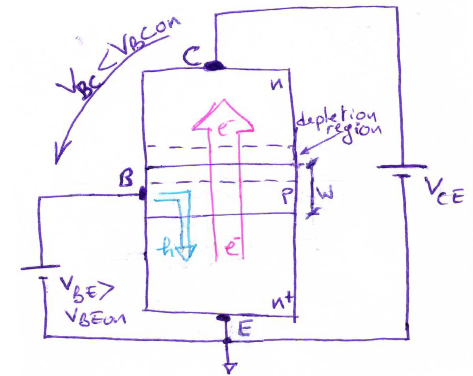 V_BC < V_BCon
C
n
e⁻
depletion
region
B
P
W
V_CE
h
e⁻
V_BE >
V_BEon
n⁺
E